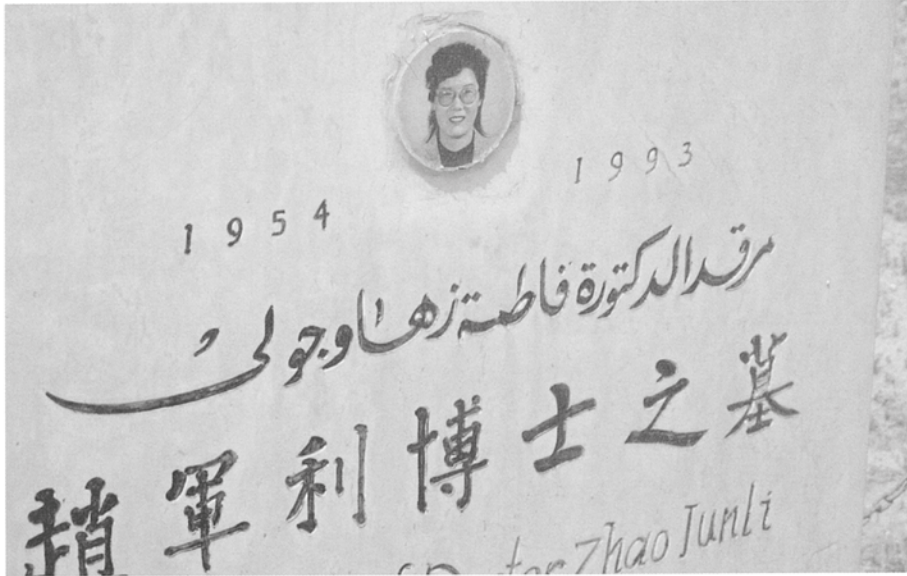 1954 1993
مرقد الدكتورة فاطمة زهاوجولي
趙軍利博士之墓
Doctor Zhao Junli